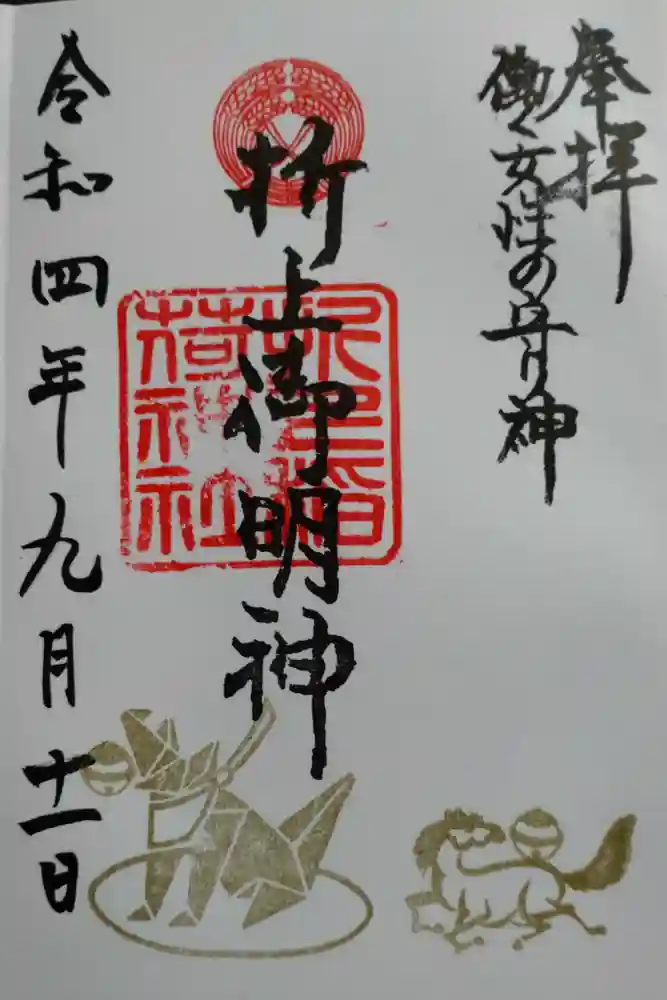 奉拝
働く女性の守り神
折上御明神
折上稲荷神社
令和四年九月十一日